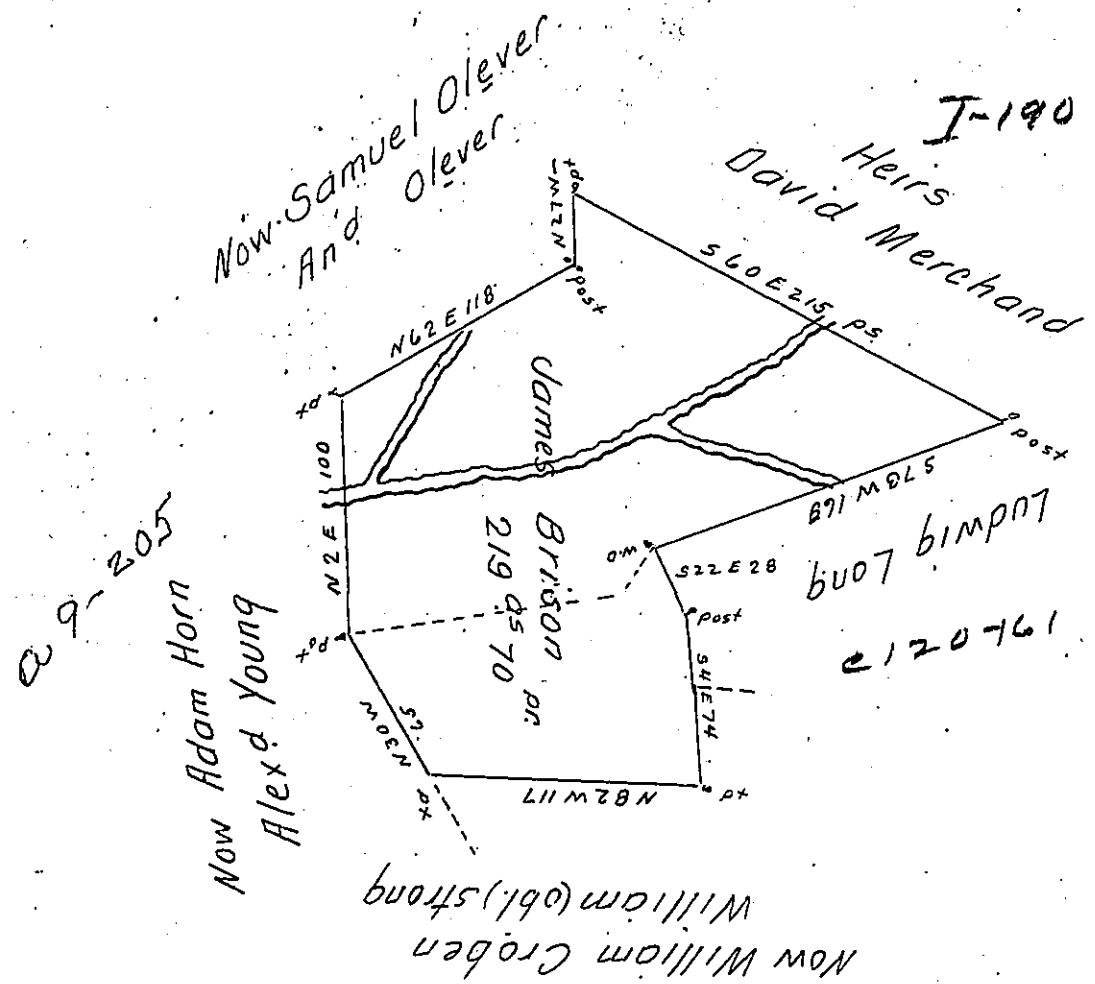 Now Samuel Olever
And Olever
I-190
Heirs
David Merchand
N22W
post
S60E215
ps.
post
N62E118
pt
N2E 100
James
Brison
219 as 70 pr.
S73W169
Ludwig Long
C120-161
w.o
S22E28
post
S41E74
pt
N82W117
px
N30W 65
Now Adam Horn
Alexd Young
William (obl.) strong
Now William Croben